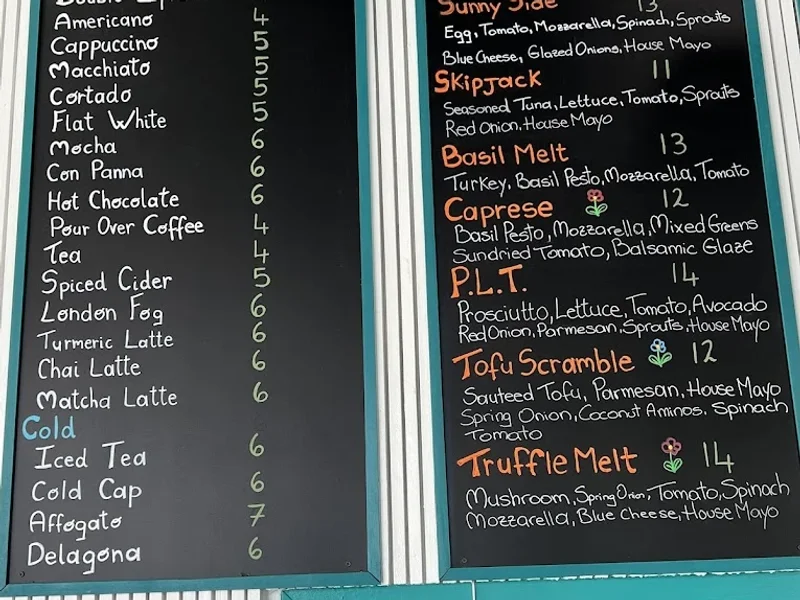 Americano 4
Cappuccino 5
Macchiato 5
Cortado 5
Flat White 5
Mocha 6
Con Panna 6
Hot Chocolate 6
Pour Over Coffee 4
Tea 4
Spiced Cider 5
London Fog 6
Turmeric Latte 6
Chai Latte 6
Matcha Latte 6
Cold
Iced Tea 6
Cold Cap 6
Affogato 7
Delagona 6
Sunny Side 13
Egg, Tomato, Mozzarella, Spinach, Sprouts
Blue Cheese, Glazed Onions, House Mayo
Skipjack 11
Seasoned Tuna, Lettuce, Tomato, Sprouts
Red Onion, House Mayo
Basil Melt 13
Turkey, Basil Pesto, Mozzarella, Tomato
Caprese 12
Basil Pesto, Mozzarella, Mixed Greens
Sundried Tomato, Balsamic Glaze
P.L.T. 14
Prosciutto, Lettuce, Tomato, Avocado
Red Onion, Parmesan, Sprouts, House Mayo
Tofu Scramble 12
Sauteed Tofu, Parmesan, House Mayo
Spring Onion, Coconut Aminos, Spinach
Tomato
Truffle Melt 14
Mushroom, Spring Onion, Tomato, Spinach
Mozzarella, Blue Cheese, House Mayo